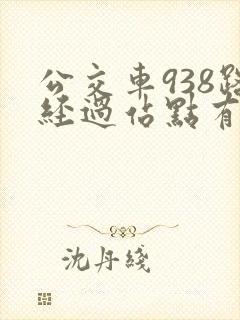 公交車938路
經過佔點有
沈丹綫